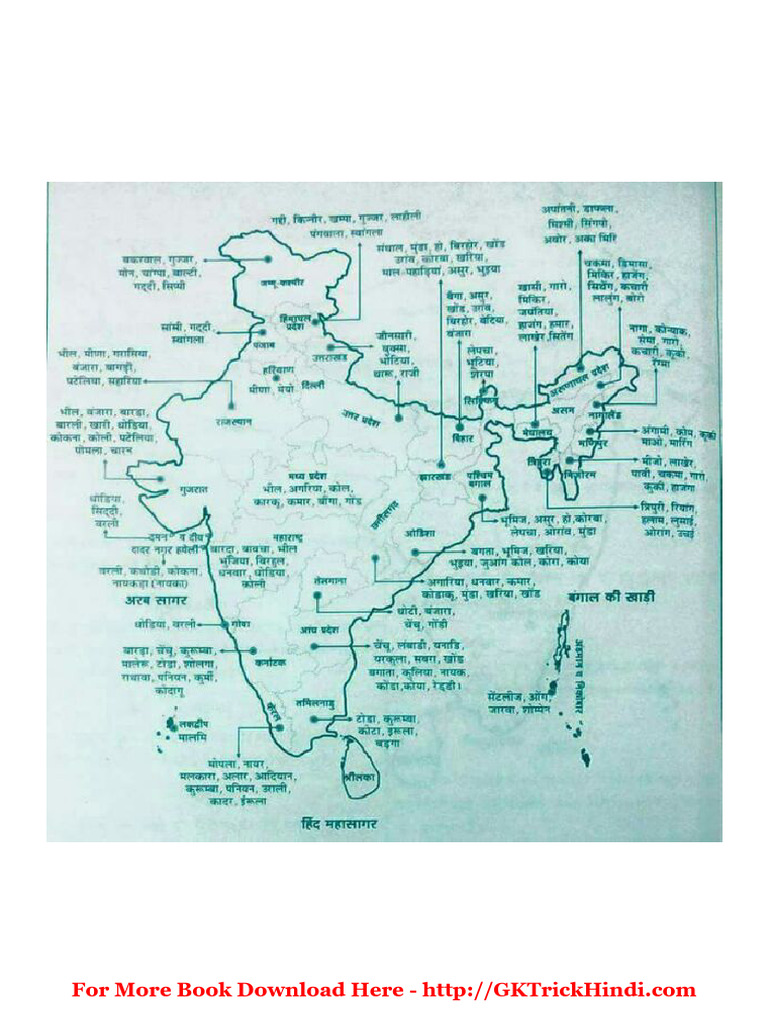 गद्दी, किन्नौर, खम्पा, गुज्जर, लाहौली
पंगवाला, स्वांगला
अपांतनी, डाफला,
मिश्मी, सिंगपो,
अबोर, अका मिरि
बकरवाल, गुज्जर,
मोन, चांग्पा, बाल्टी,
गद्दी, सिप्पी
जम्मू-कश्मीर
संथाल, मुंडा, हो, बिरहोर, खोंड
उरांव, कोरबा, खरिया,
माल पहाड़िया, असुर, भुइया
चकमा, डिमासा,
मिकिर, हाजंग,
सिंथेंग, कचारी
लालुंग, बोरो
बैगा, असुर,
खोंड, उरांव,
बिरहोर, बेदिया,
बंजारा
खासी, गारो,
मिकिर,
जयंतिया,
हाजंग, हमार,
लाखेर सिंतेंग
हिमाचल
प्रदेश
सांसी, गद्दी,
स्वांगला
पंजाब
उत्तराखंड
जौनसारी,
बुक्सा,
भोटिया,
थारू, राजी
लेपचा,
भूटिया,
शेरपा
नागा, कोन्याक,
सेमा, गारो,
कचारी, कूकी,
रेंग्मा
भील, मीणा, गरासिया,
बंजारा, बागड़ी,
पटेलिया, सहारिया
हरियाणा
मीणा, मेयो
दिल्ली
सिक्किम
अरुणाचल प्रदेश
असम
नागालैंड
राजस्थान
उत्तर प्रदेश
बिहार
मेघालय
मणिपुर
अंगामी, कोम, कूकी
माओ, मारिंग
भील, बंजारा, बारडा,
बारली, खारी, धोडिया,
कोकना, कोली, पटेलिया,
पोमला, चारन
झारखंड
पश्चिम
बंगाल
त्रिपुरा
मिजोरम
मीजो, लाखेर,
पावी, चकमा, गारो,
कुकी, हाजंगा
गुजरात
मध्य प्रदेश
भील, अगरिया, कोल,
कारकू, कमार, बौगा, गोंड
छत्तीसगढ़
धोडिया,
सिद्दी,
वरली
त्रिपुरी, रियांग,
हलाम, लुसाई,
ओरांग, उचई
भूमिज, असुर, हो, कोरबा,
लेपचा, ओरांव, मुंडा
ओडिशा
दमन व दीव
दादर नगर हवेली
महाराष्ट्र
बारदा, बावचा, भील
भुंजिया, बिरहुल,
धनवार, धोडिया
कोली
बगता, भूमिज, खरिया,
भुइया, जुआंग कोल, कोरा, कोया
वारली, कथोडी, कोकना,
नायकहा (नायका)
अरब सागर
तेलंगाना
अगारिया, धनवार, कमार,
कोडाकू, मुंडा, खरिया, खोंड
बंगाल की खाड़ी
थोटी, बंजारा,
चेंचू, गोंडी
धोडिया, वरली
गोवा
आंध्र प्रदेश
बारडा, चेंचू, कुरूम्बा,
मालेरू, टोडा, शोलगा,
राथावा, पनियन, कुर्मा,
कोंदागू
कर्नाटक
चेंचू, लंबाडी, यनाडि,
यरकुला, सबरा, खोंड
बगाता, कुलिया, नायक,
कोंडा, कोया, रेड्डी।
अंडमान व निकोबार
सेंटलीज, ओंग,
जारवा, शोम्पेन
केरल
तमिलनाडु
टोडा, कुरूम्बा,
कोटा, इरूला,
बड़गा
लक्षद्वीप
मालमि
मोपला, नायर,
मलकारा, अलार, आदियान,
कुरूम्बा, पनियन, उराली,
कादर, ईरूला
श्रीलंका
हिंद महासागर
For More Book Download Here - http://GKTrickHindi.com